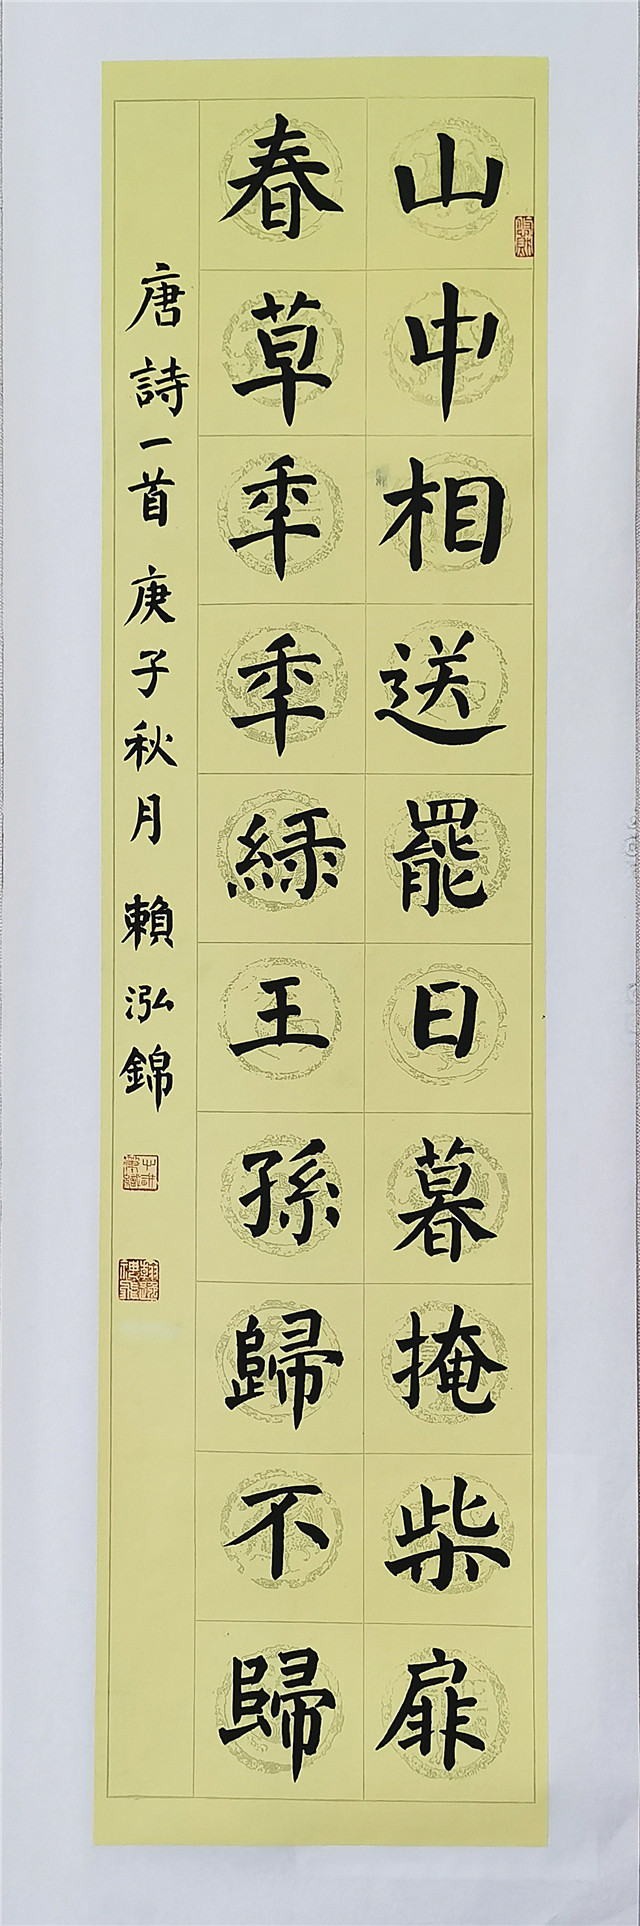 山中相送罷日暮掩柴扉
春草年年綠王孫歸不歸
唐詩一首 庚子秋月 賴泓錦